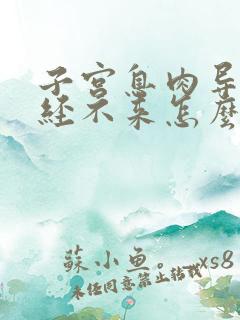 子宫息肉导
经不来怎麽
蘇小鱼。_xs8
未经同意禁止转载